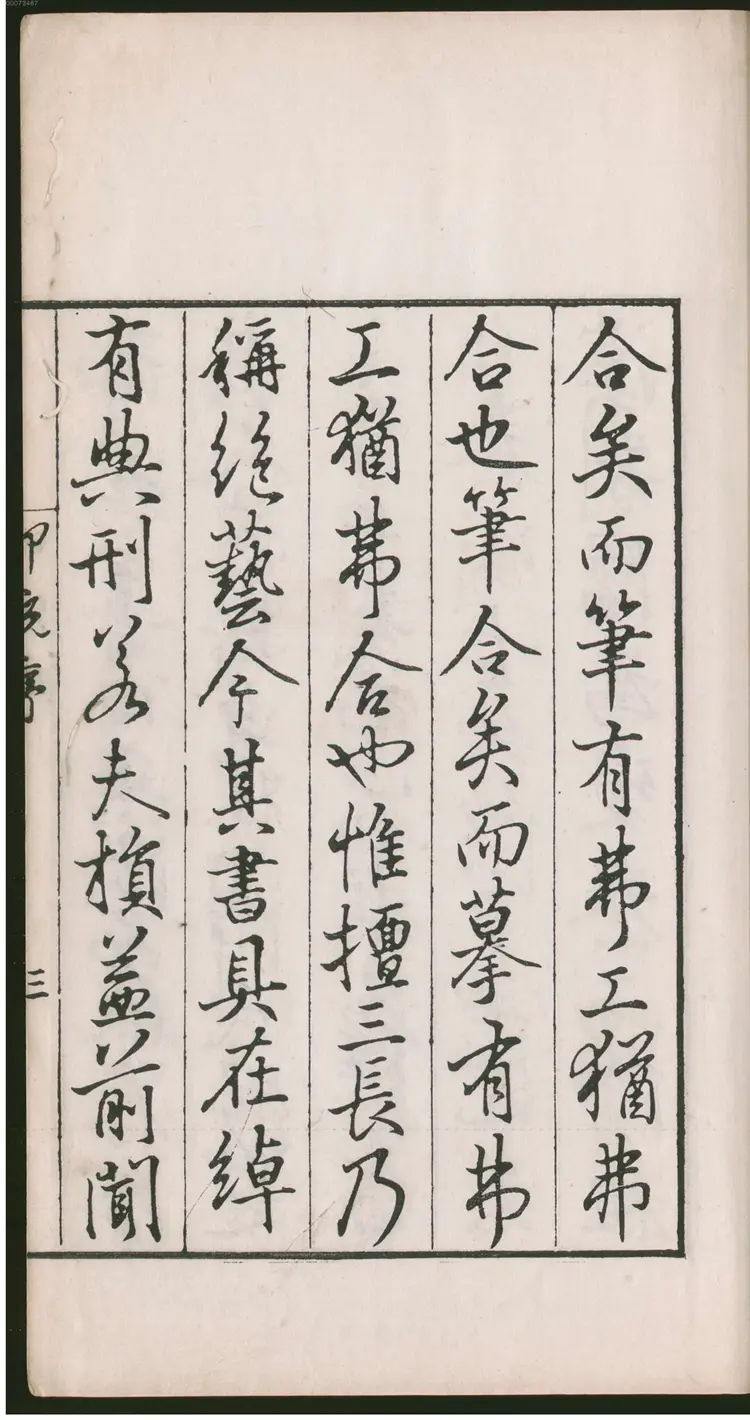 合矣而筆有弗工猶弗
合也筆合矣而摹有弗
工猶弗合也惟擅三長乃
稱絶藝今其書具在綽
有典刑若夫損益前聞
三
00073467